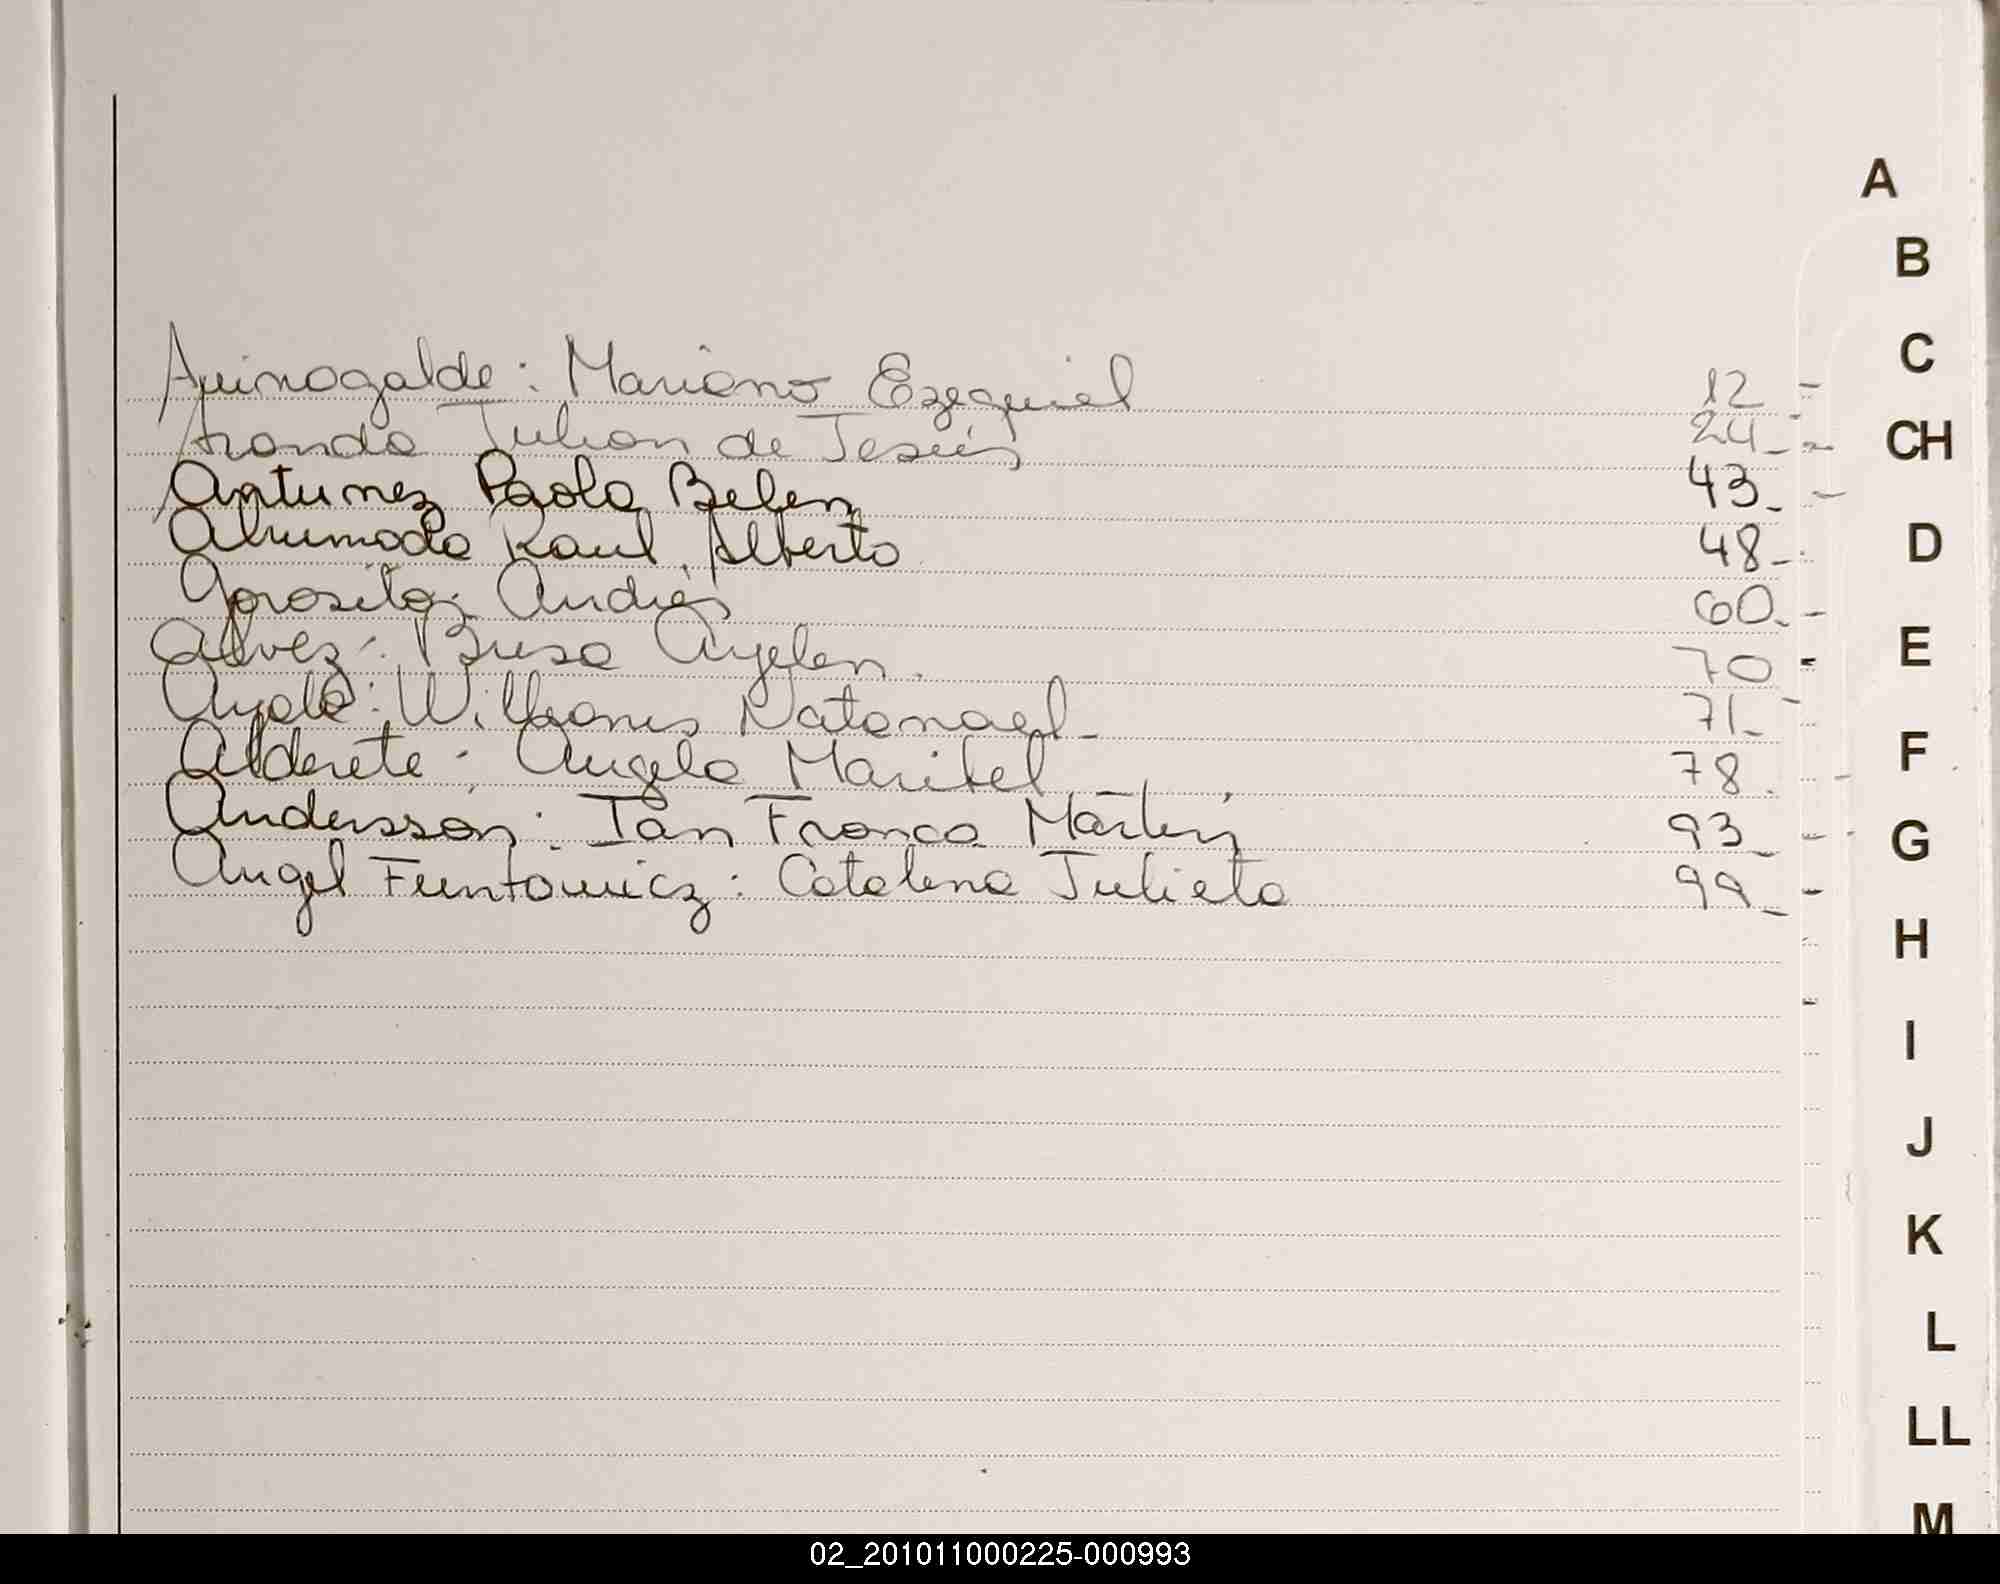 Aguinogalde: Mariano Ezequiel 12
Aranda Julian de Jesús 24-
Antunez Paola Belen 43-
Ahumada Raul Alberto 48-
Gorosito: Andrés 60-
Alvez: Brisa Ayelen 70
Ayala: Willians Natanael- 71-
Alderete: Angela Maribel 78.
Andersson: Ian Franco Martín 93-
Angel Funtowicz: Catalina Julieta 99-
A
B
C
CH
D
E
F
G
H
I
J
K
L
LL
M
02_201011000225-000993